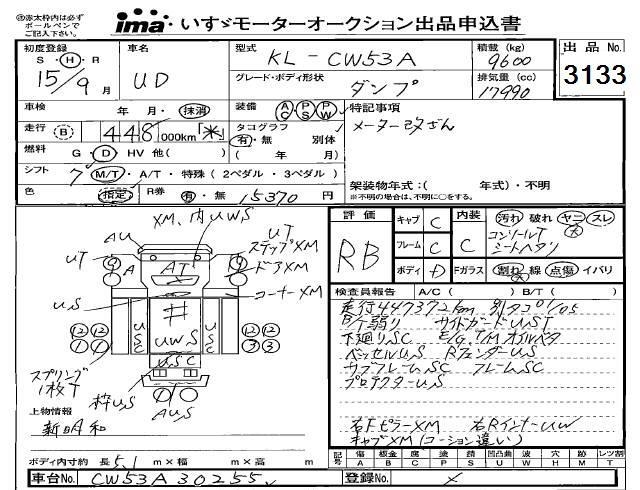 ※赤太枠内は必ずボールペンでご記入下さい。
ima いすゞモーターオークション出品申込書
初度登録 S・H・R 15/9月
車名 UD
型式 KL-CW53A
積載(kg) 9600
出品No. 3133
グレード・ボディ形状 ダンプ
排気量(cc) 17990
車検 年 月・抹消
装備 AC PS PW
特記事項
走行 B 448,000km「※」
タコグラフ 有・無 別体
メーター改ざん
燃料 G・D・HV 他( )
( 年 月)
シフト 7 M/T・A/T・特殊(2ペダル・3ペダル)
架装物年式:( 年式)・不明
色 指定
R券 有・無 15370円
※不明の場合は、不明に○をする。
XM、内UWS
AU
UT
ステップXM
UT
A
AT
ドアXM
US
コーナーXM
12 12
1 1
USC
UWS
USC
12 12
3 3
USC
スプリング1枚T
枠US
AUS
上物情報
新明和
ボディ内寸約 長5.1m×幅 m×高 m
評価 RB
キャブ C
内装 C
汚れ 破れ ヤニ スレ
フレーム C
コンソールT
シートヘタリ
ボディ D
Fガラス
割れ 線 点傷 イバリ
検査員報告 A/C( ) B/T( )
走行447372km 別タコ01/05
B/T弱り サイドガードUST
下廻りSC E/G、T/Mオイルベタ
ベッセルUS RフェンダーUS
サブフレームSC フレームSC
プロテクターUS
右FピラーXM 右RインナーUW
キャブXM(コーション違い)
記号 傷A 板金B 腐C 塗P 錆S 凹凸曲U 波W 穴H メM レツ割T
車台No. CW53A30255
登録No.